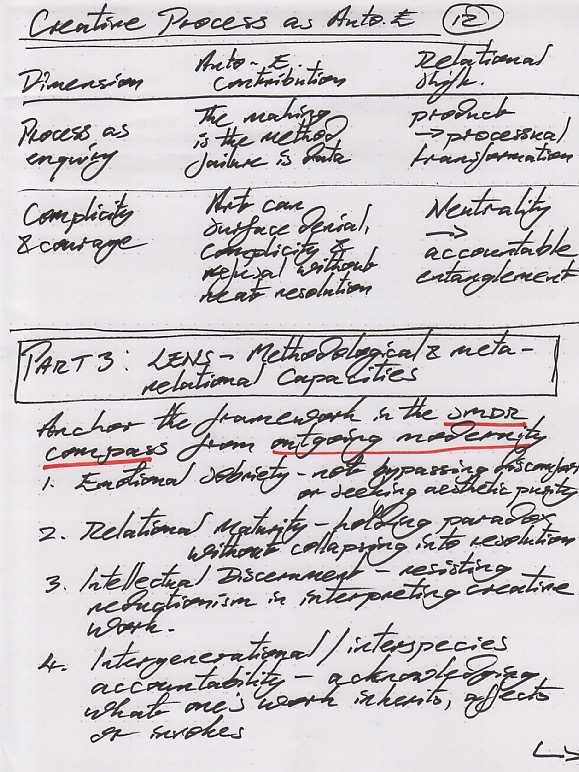 Creative Process as Auto.E 12
Dimension
Auto-E.
contribution
Relational
shift.
Process as
enquiry
The making
is the method
failure is data
product
→ processual
transformation
Complicity
& courage
Art can
surface denial,
complicity &
refusal without
neat resolution
Neutrality
→
accountable
entanglement
PART 3: LENS – Methodological & meta-
relational Capacities
Anchor the framework in the SMDR
compass from outgoing modernity
1. Emotional Sobriety – not bypassing discomfort
or seeking aesthetic purity
2. Relational Maturity – holding paradox
without collapsing into resolution
3. Intellectual Discernment – resisting
reductionism in interpreting creative
work.
4. Intergenerational / interspecies
accountability – acknowledging
what one's work inherits, affects
or invokes